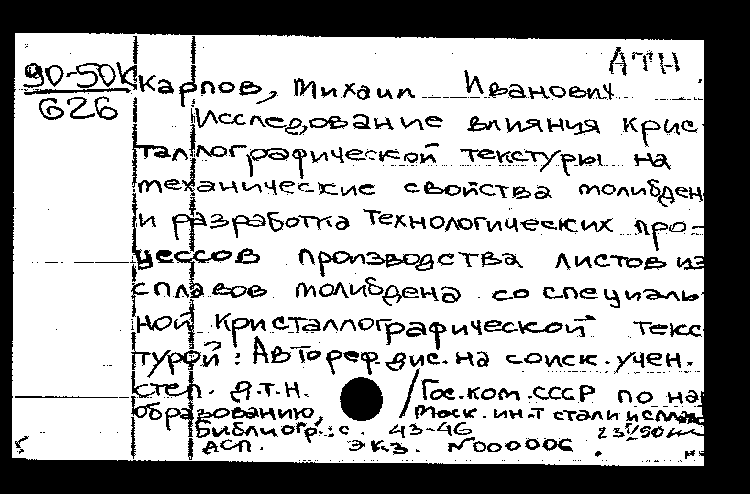 АТН
90-50К
626
Карпов, Михаил Иванович
Исследование влияния крис-
таллографической текстуры на
механические свойства молибден
и разработка технологических про-
цессов производства листов из
сплавов молибдена со специаль
ной кристаллографической текс
турой: Автореф. дис. на соиск. учен.
степ. д.т.н. / Гос. ком. СССР по на
образованию, Моск. ин-т стали и сплав
Библиогр.: с. 43-46
АСП. ЭКЗ. N000006.